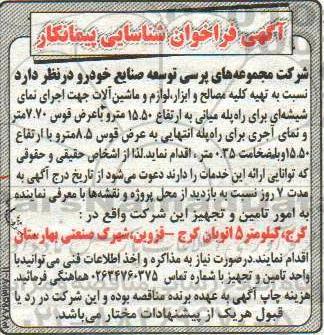 آگهی فراخوان شناسایی پیمانکار
شرکت مجموعه‌های پرسی توسعه صنایع خودرو درنظر دارد
نسبت به تهیه کلیه مصالح و ابزار،لوازم و ماشین‌آلات جهت اجرای نمای
شیشه‌ای برای راه‌پله میانی به ارتفاع ۱۵.۵۰ مترو باعرض قوس ۷.۷۰متر
و نمای آجری برای راه‌پله انتهایی به عرض قوس ۸.۵مترو با ارتفاع
۱۵.۵۰وبضخامت ۰.۳۵ متر، اقدام نماید.لذا از اشخاص حقیقی و حقوقی
که توانایی ارائه این خدمات را دارند دعوت می‌شود از تاریخ درج آگهی به
مدت ۷ روز نسبت به بازدید از محل پروژه و نقشه‌ها با معرفی نماینده
به امور تامین و تجهیز این شرکت واقع در :
کرج،کیلومتر۵ اتوبان کرج –قزوین،شهرک صنعتی بهارستان
اقدام نمایند.درصورت نیاز به مذاکره و اخذ اطلاعات فنی می‌توانیدبا
واحد تامین و تجهیز با شماره تماس ۰۲۶۳۴۷۶۰۳۷۵ هماهنگی فرمائید.
هزینه چاپ آگهی به عهده برنده مناقصه بوده و این شرکت در رد یا
قبول هریک از پیشنهادات مختار می‌باشد.